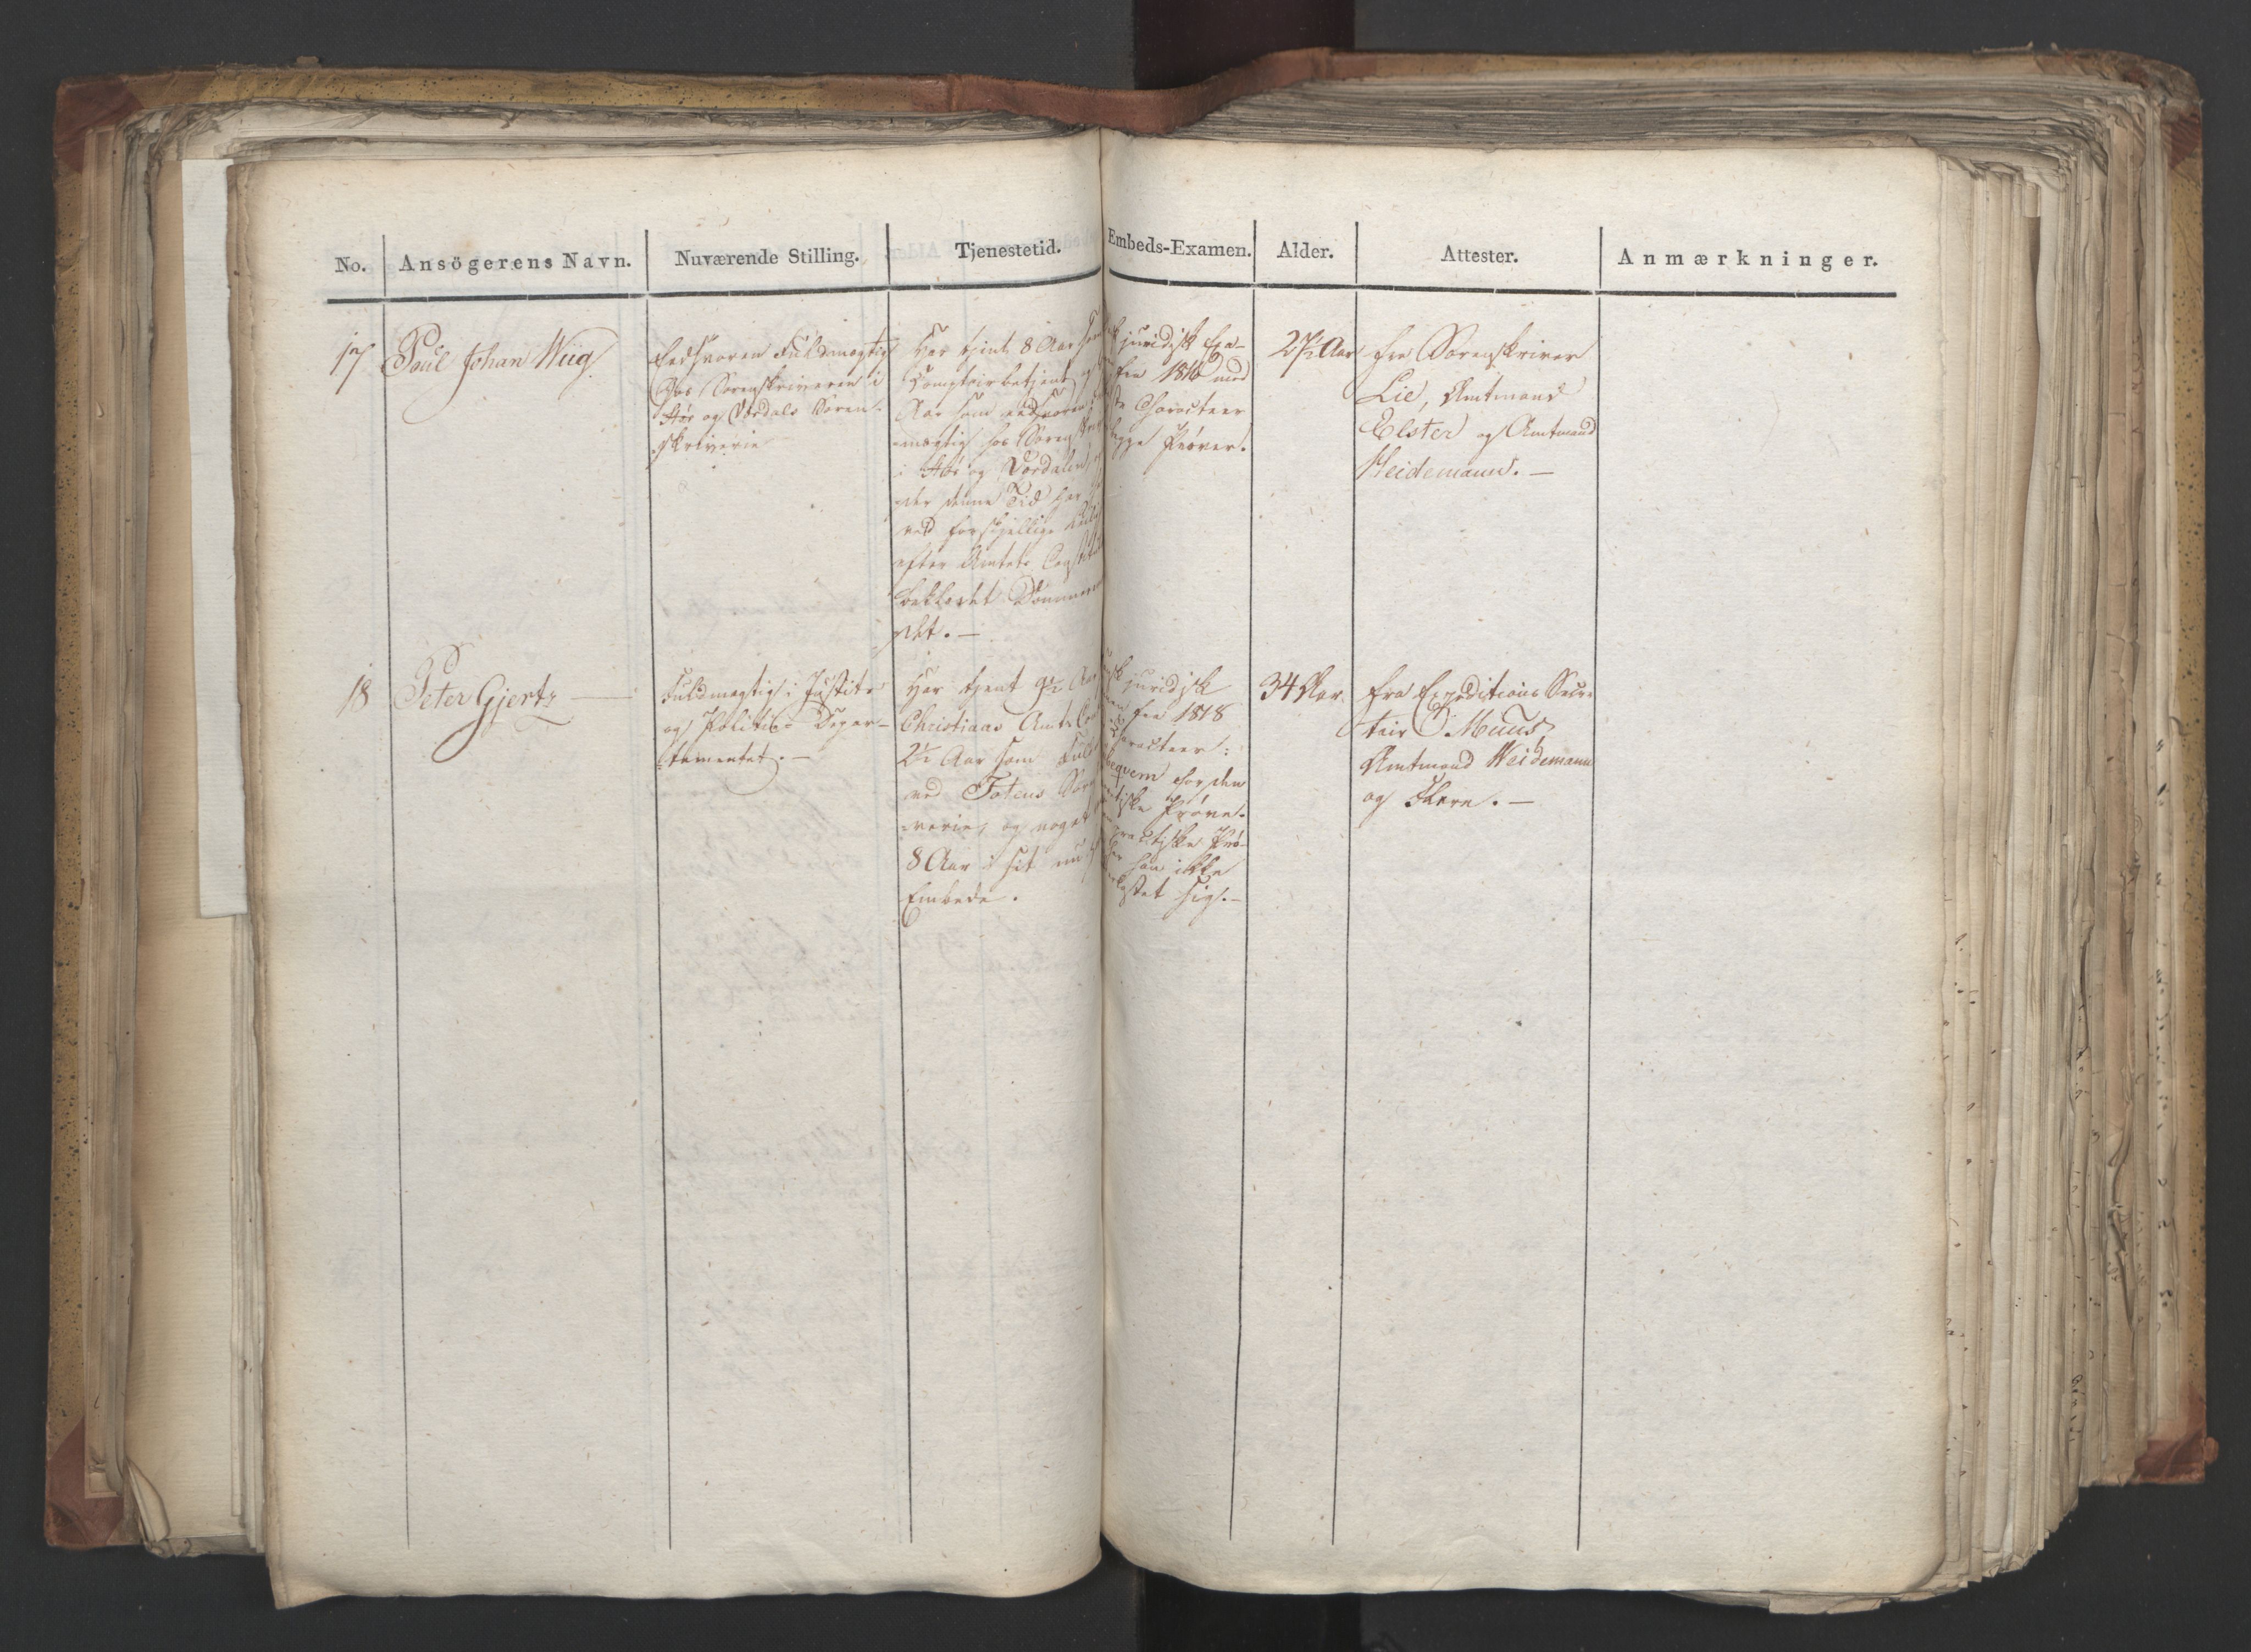 No.
Ansögerens Navn.
Nuværende Stilling.
Tjenestetid.
Embeds-Examen.
Alder.
Attester.
Anmærkninger.
17
Poul Johan Wiig
Eedsvoren Fuldmægtig
hos Sorenskriveren i
Stør og Værdals Soren-
skriverie
Har tjent 8 Aar som
Comptoirbetjent og
Aar som eedsvoren
mægtig hos Sorenskr
i Stør og Værdalen,
der denne Tid har
ved forskjellige
efter Amtets Constit
beklædt Dommerem
det. —
juridisk Exa-
fra 1816 med
Characteer
begge Prøver.
Aar
fra Sorenskriver
Lie, Amtmand
Elster og Amtmand
Heidemann. —
18
Peter Gjertz —
Fuldmægtig i Justits
og Politie Depar-
tementet. —
Har tjent 9½ Aar
Christians Amts
2½ Aar som Fuld
ved Totens Sor
verie, og noget
8 Aar i sit nu
Embede.
juridisk
fra 1818
aracteer:
beqvem for den
tiske Prøve.
practiske Prø-
har han ikke
kastet sig. —
34 Aar.
fra Expeditions Secre
tair Muus,
Amtmand Heidemann
og Flere. —